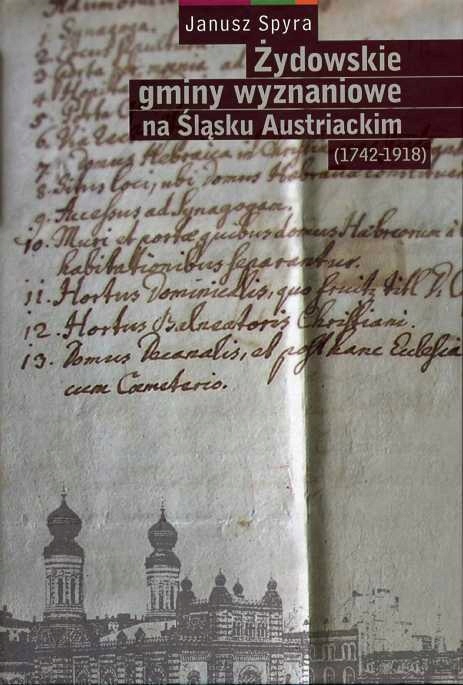 Janusz Spyra
Żydowskie
gminy wyznaniowe
na Śląsku Austriackim
(1742-1918)
1. Synagoga.
2.
3. Porta
4.
5. Porta
6. Via
7. Domus Hebraica in
8. Situs loci, ubi Domus Hebraea
9. Accessus ad Synagogam.
10. Muri et portae quibus domus Hebreorum a
habitationibus separantur.
11. Hortus Dominicalis, quo fruit. titl D.
12. Hortus Balneatoris Christiani.
13. Domus Decanalis, et post hanc Eclesia
cum Caemeterio.